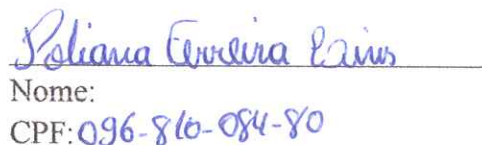 Poliana Ferreira
Nome:
CPF: 096-810-084-80